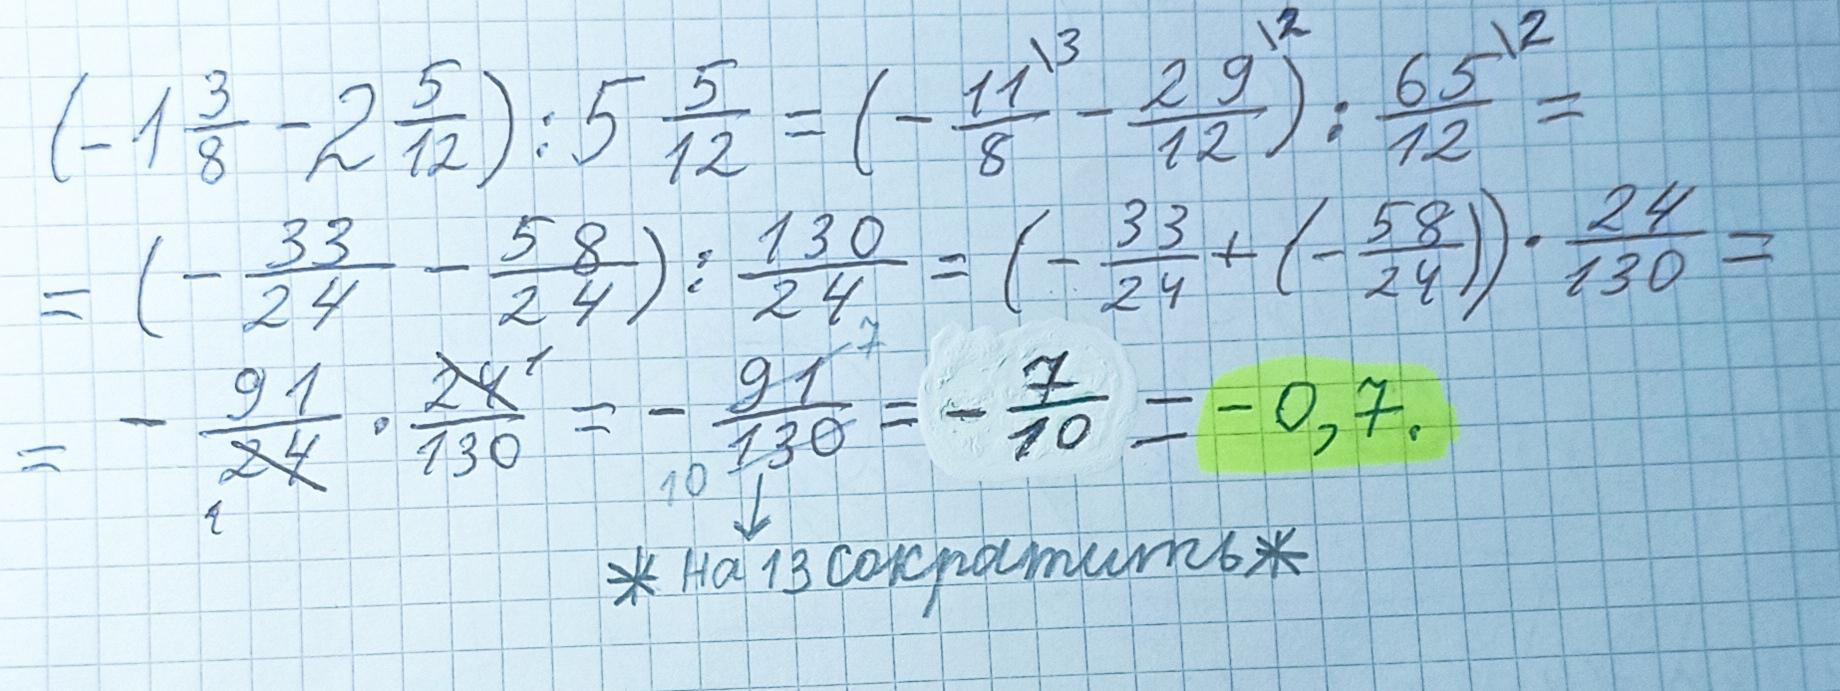 (-1 3/8 - 2 5/12) : 5 5/12 = (- 11/8 \3 - 29/12 \2) : 65/12 \2 =
= (- 33/24 - 58/24) : 130/24 = (- 33/24 + (- 58/24)) · 24/130 =
= - 91/24 1 · 24/130 1 = - 91/130 7 10 = - 7/10 = -0,7.
* на 13 сократить *